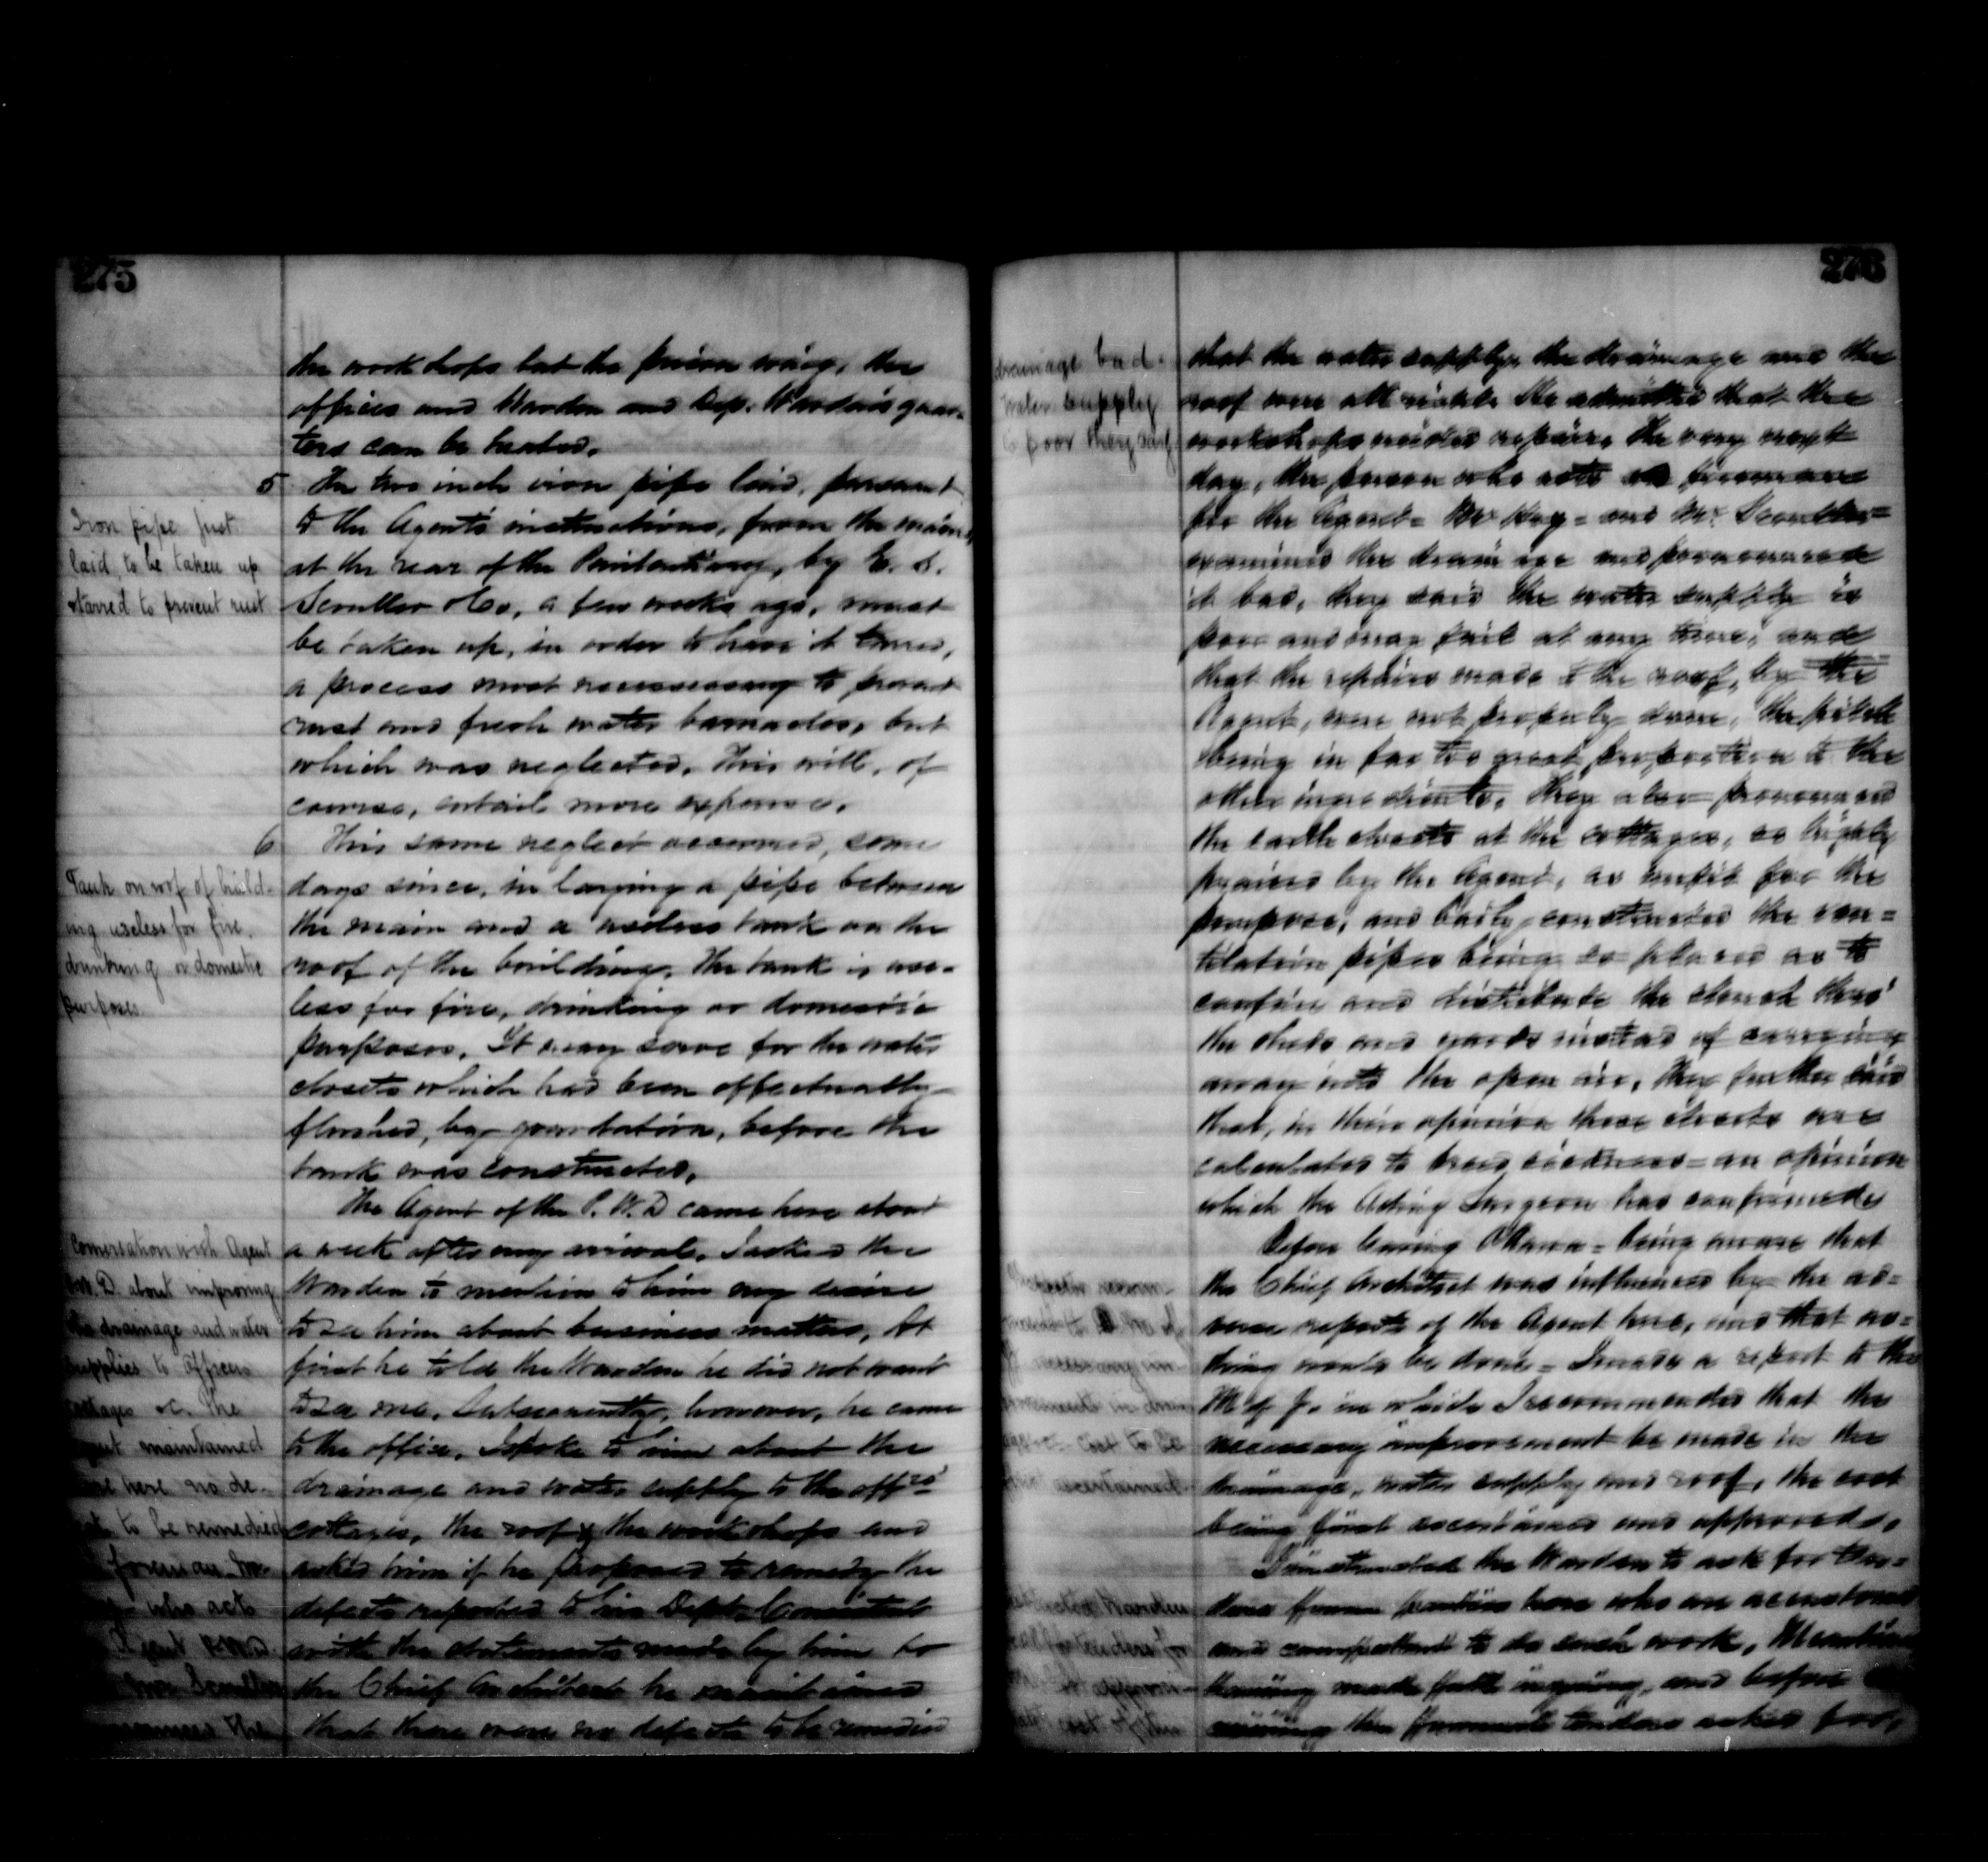 275
the workshops but the prison wing, the
offices and Warden and Dep. Warden's quar-
ters can be heated.
5 The two inch iron pipe laid, pursuant
to the Agent's instructions, from the main,
at the rear of the Penitentiary, by E. S.
Scoullar & Co, a few weeks ago, must
be taken up, in order to have it tarred,
a process most necessary to prevent
rust and fresh water barnacles, but
which was neglected. This will, of
course, entail more expense.
6 This same neglect occurred, some
days since, in laying a pipe between
the main and a useless tank on the
roof of the building. The tank is use-
less for fire, drinking or domestic
purposes. It may serve for the water
closets which had been effectually
flushed, by gravitation, before the
tank was constructed.
The Agent of the P. W. D came here about
a week after my arrival. I asked the
Warden to mention to him my desire
to see him about business matters. At
first he told the Warden he did not want
to see me. Subsequently, however, he came
to the office. I spoke to him about the
drainage and water supply to the offrs'
cottages, the roof of the workshops and
asked him if he proposed to remedy the
defects reported to his Dept. Consistent
with the statements made by him to
the Chief Architect he maintained
that there were no defects to be remedied
Iron pipe just
laid, to be taken up
& tarred to prevent rust
Tank on roof of build-
ing useless for fire,
drinking or domestic
purposes.
Conversation with Agent
P.W.D. about improving
the drainage and water
supplies to officers
cottages &c. The
Agent maintained
there were no de-
fects to be remedied
foreman Mr.
who acts
Agent P.W.D.
Mr Scoullar
the
276
that the water supply, the drainage and the
roof were all right. He admitted that the
workshops needed repairs. The very next
day, the person who acts as foreman
for the Agent = Mr Hay = and Mr. Scoullar =
examined the drainage and pronounced
it bad, they said the water supply is
poor and may fail at any time, and
that the repairs made to the roof, by the
Agent, were not properly done, the pitch
being in far too great proportion to the
other ingredients. They also pronounced
the earth closets at the cottages, so highly
praised by the Agent, as unfit for the
purpose, and badly constructed the ven=
tilation pipes being so placed as to
confine and distribute the stench thro'
the sheds and yards instead of carrying
away into the open air. They further said
that, in their opinion these closets are
calculated to breed sickness = an opinion
which the Acting Surgeon has confirmed.
Before leaving Ottawa = being aware that
the Chief Architect was influenced by the ad=
verse reports of the Agent here, and that no=
thing would be done = I made a report to the
M of J. in which I recommended that the
necessary improvement be made in the
drainage, water supply and roof, the cost
being first ascertained and approved.
I instructed the Warden to ask for ten=
ders from parties here who are accustomed
and competent to do such work. Meantime
having made full inquiry, and before
the formal tenders asked for,
drainage bad.
Water supply
is poor they say
ascertained.
Warden
tenders for
cost of the